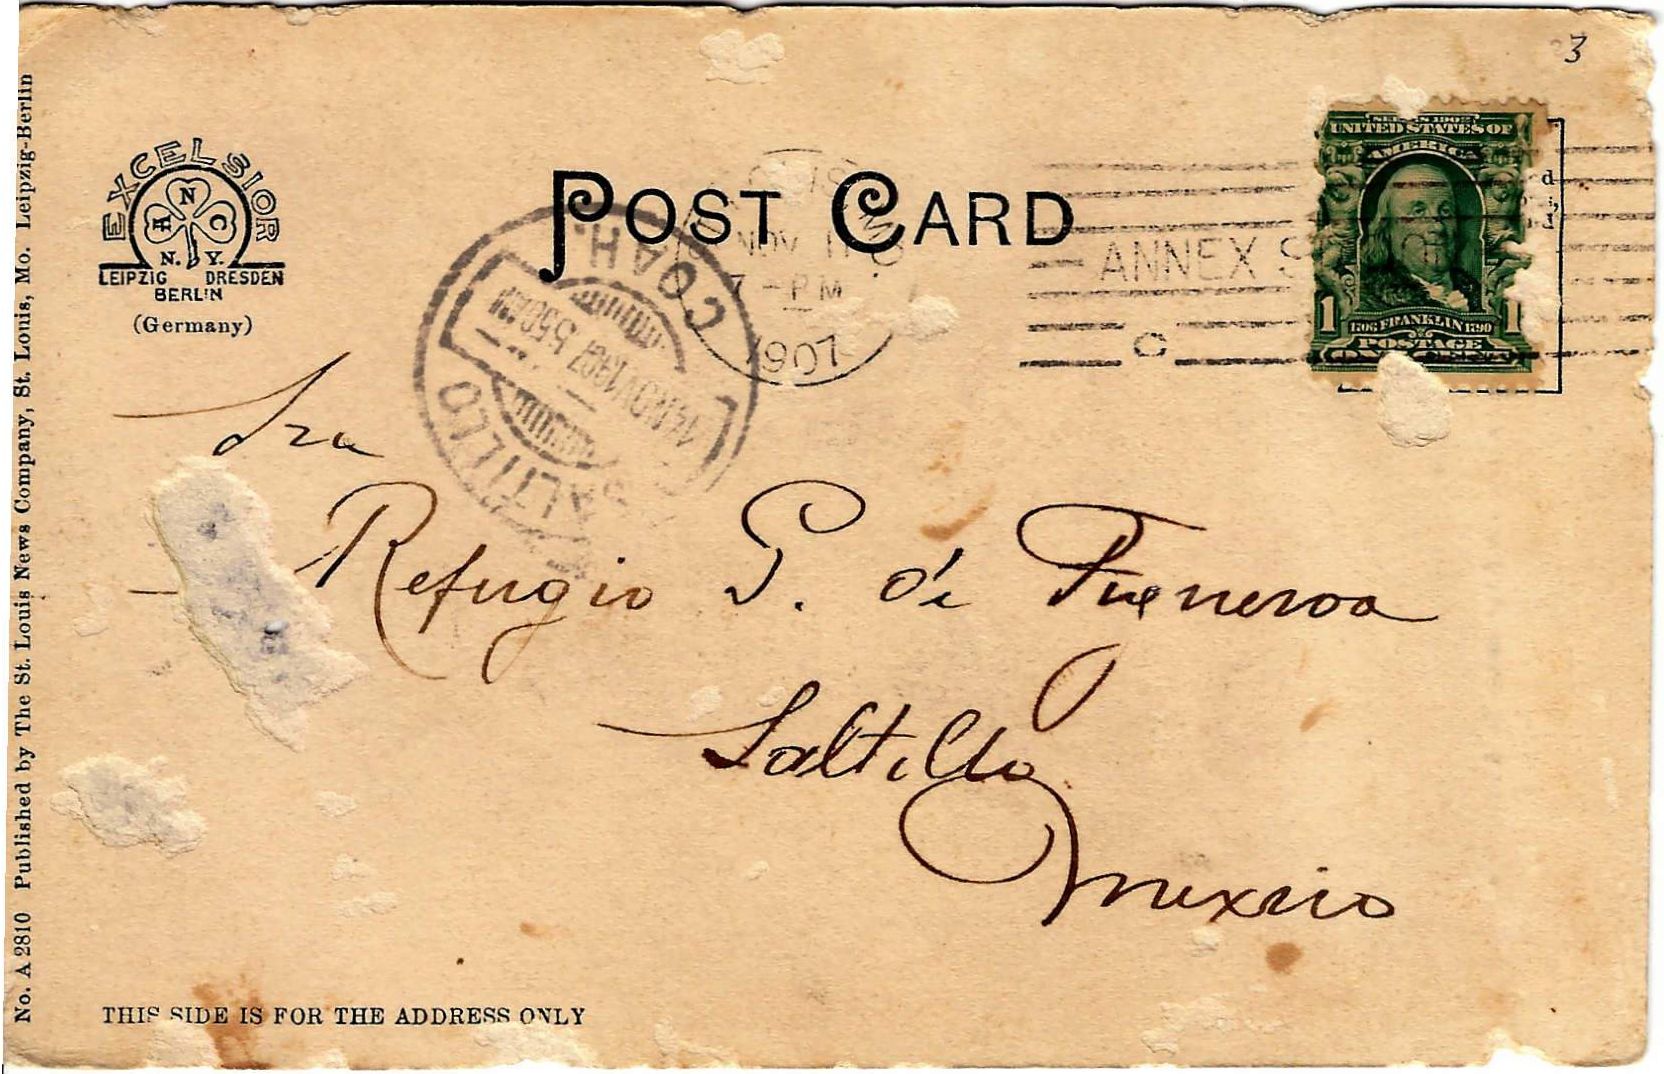 3
EXCELSIOR
N
N. Y.
LEIPZIG DRESDEN
BERLIN
(Germany)
POST CARD
NOV 11
7-PM
1907
ANNEX
C
SALTILLO COAH.
14 NOV 1907
SERIES 1902
UNITED STATES OF
AMERICA
1706 FRANKLIN 1790
1 1
POSTAGE
ONE CENT
Sra
Refugio G. de Figueroa
Saltillo
Mexico
THIS SIDE IS FOR THE ADDRESS ONLY
No. A 2810 Published by The St. Louis News Company, St. Louis, Mo. Leipzig-Berlin